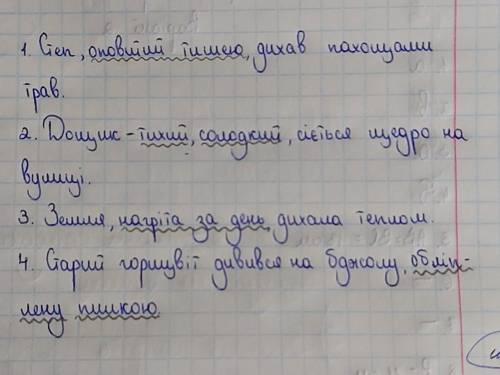 1. Степ, оповитий тишею, дихав пахощами
трав.
2. Дощик – тихий, солодкий, сіється щедро на
вулиці.
3. Земля, нагріта за день, дихала теплом.
4. Старий горицвіт дивився на бджолу, обліп-
лену пилкою.